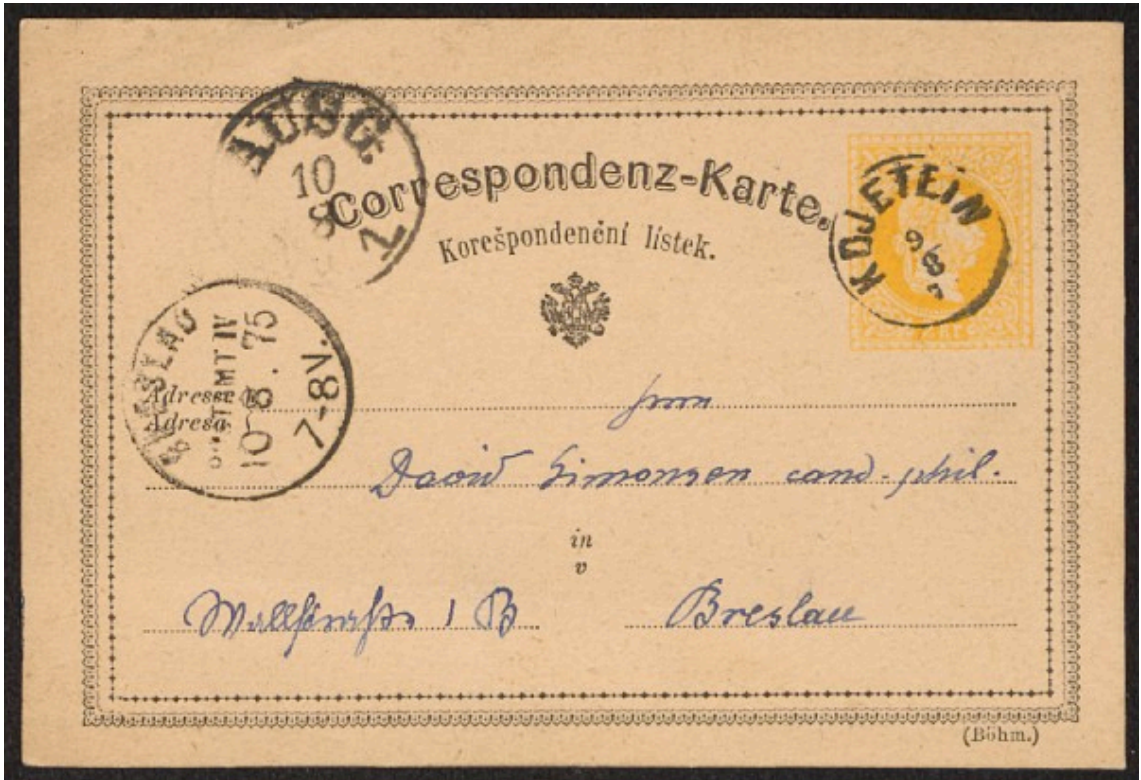 AUSG.
10
8
Z
Correspondenz-Karte.
Korešpondenční lístek.
KOJETEIN
9/8
BRESLAU
10 8. 75
7-8V.
Adresse
Adresa
Herrn
David Simonsen cand. phil.
in
v
Wallstraße 1 B Breslau
(Böhm.)